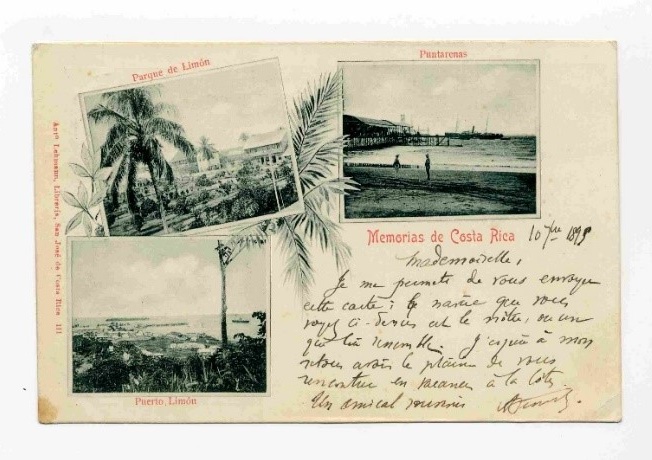 Parque de Limón
Puntarenas
Antº Lehmann, Librería, San José de Costa Rica 111
Memorias de Costa Rica
1899
Mademoiselle,
Je me permets de vous envoyer
cette carte; le navire que vous
voyez ci-dessus est le nôtre, ou un
qui lui ressemble. J'espère à mon
retour avoir le plaisir de vous
rencontrer en vacances à la
Un amical
Puerto, Limón